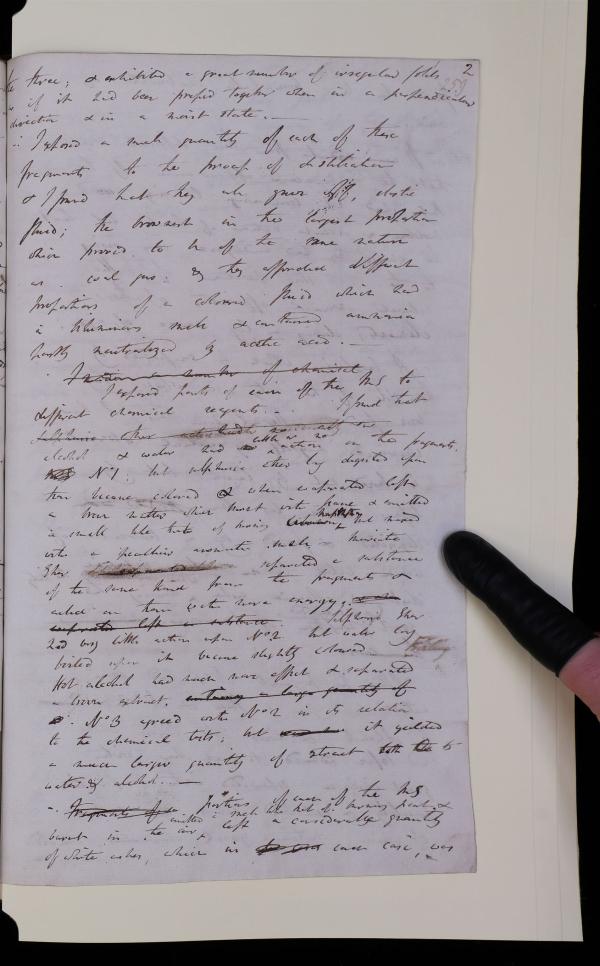 2
three; & exhibited a great number of irregular folds
as if it had been pressed together when in a perpendicular
direction & in a moist state. —
I exposed a small quantity of each of these
fragments to the process of distillation
& I found that they all gave off, elastic
fluid; the brownest in the largest proportion
which proved to be of the same nature
as coal gas: & they afforded different
proportions of a coloured fluid which had
a bituminous smell & contained ammonia
partly neutralized by acetic acid. —
a number of chemical
I exposed parts of each of the MS to
different chemical reagents. — I found that
alcohol & water had little or no action on the fragments.
No 1: but sulphuric ether by digested upon
them became coloured & when evaporated left
a brown matter which burnt with flame & emitted
a smell like that of burning but mixed
with a peculiar aromatic smell — Muriatic
Ether separated a substance
of the same kind from the fragments &
acted on them with more energy,
evaporated left a substance. Sulphuric Ether
had very little action upon No 2 but water long
boiled upon it became slightly coloured.
Hot alcohol had much more effect & separated
a brown extract. a large quantity of
No 3 agreed with No 2 in its relation
to the chemical tests; but it yielded
a much larger quantity of extract both to
water & alcohol. —
Fragments of Portions of each of the MS
emitted a smell like that of burning peat &
burnt in the air & left a considerable quantity
of white ashes, which in each case, was